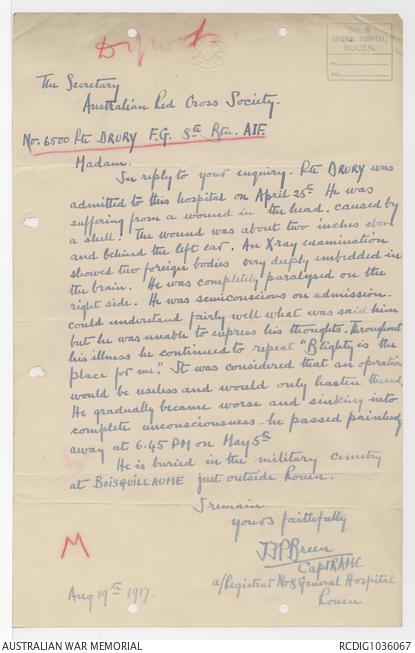 No. 8
GENERAL HOSPITAL,
ROUEN.
No.
Date
The Secretary
Australian Red Cross Society.
No. 6500 Pte DRURY F.G. 8th Btn. AIF.
Madam.
In reply to your inquiry. Pte DRURY was
admitted to this hospital on April 25th. He was
suffering from a wound in the head. caused by
a shell. The wound was about two inches above
and behind the left ear. An Xray examination
showed two foreign bodies very deeply embedded in
the brain. He was completely paralysed on the
right side. He was semiconscious on admission.
could understand fairly well what was said him
but he was unable to express his thoughts. Throughout
his illness he continued to repeat "Blighty is the
place for me." It was considered that an operation
would be useless and would only hasten the end.
He gradually became worse and sinking into
complete unconsciousness - he passed painlessly
away at 6.45 PM on May 5th
He is buried in the military cemetry
at BOISQUILLAUME just outside Rouen.
I remain
yours faithfully
J.F.P Breen
Capt RAMC
a/Registrar No 8 General Hospital
Rouen
M
Aug 19th 1917.
AUSTRALIAN WAR MEMORIAL
RCDIG1036067